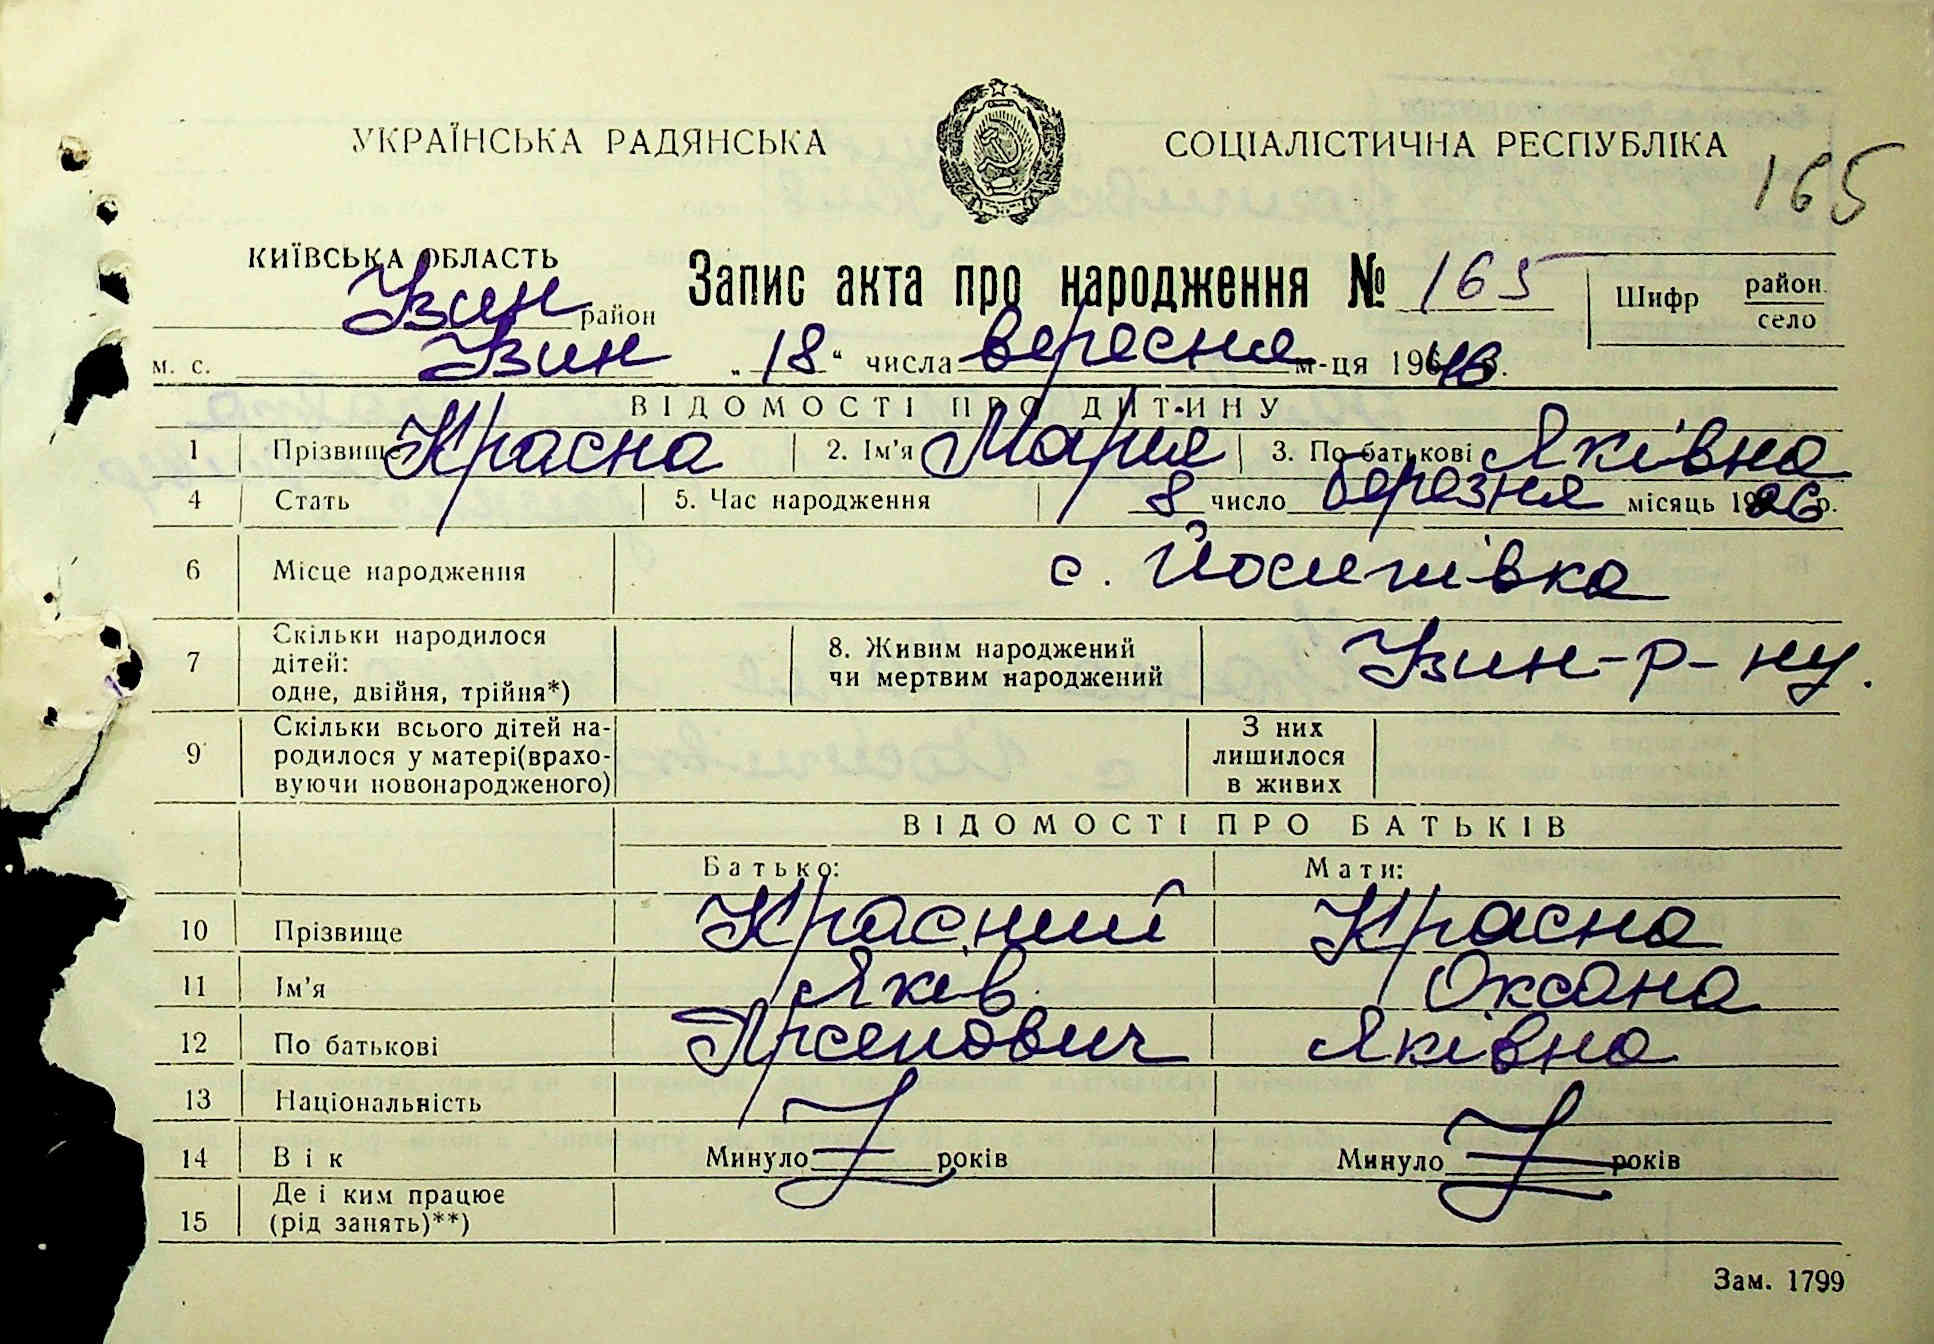 УКРАЇНСЬКА РАДЯНСЬКА СОЦІАЛІСТИЧНА РЕСПУБЛІКА
165
КИЇВСЬКА ОБЛАСТЬ
Узин район
Запис акта про народження № 165
Шифр район село
м. с. Узин „18“ числа вересня м-ця 1946 р.
ВІДОМОСТІ ПРО ДИТИНУ
1 Прізвище Красна 2. Ім’я Марія 3. По батькові Яківна
4 Стать 5. Час народження 8 число березня місяць 1926 р.
6 Місце народження с. Йосипівка
7 Скільки народилося дітей: одне, двійня, трійня*) 8. Живим народжений чи мертвим народжений Узин-р-ну.
9 Скільки всього дітей народилося у матері(враховуючи новонародженого) З них лишилося в живих
ВІДОМОСТІ ПРО БАТЬКІВ
Батько: Мати:
10 Прізвище Красний Красна
11 Ім’я Яків Оксана
12 По батькові Арсенович Яківна
13 Національність
14 Вік Минуло років Минуло років
15 Де і ким працює (рід занять)**)
Зам. 1799